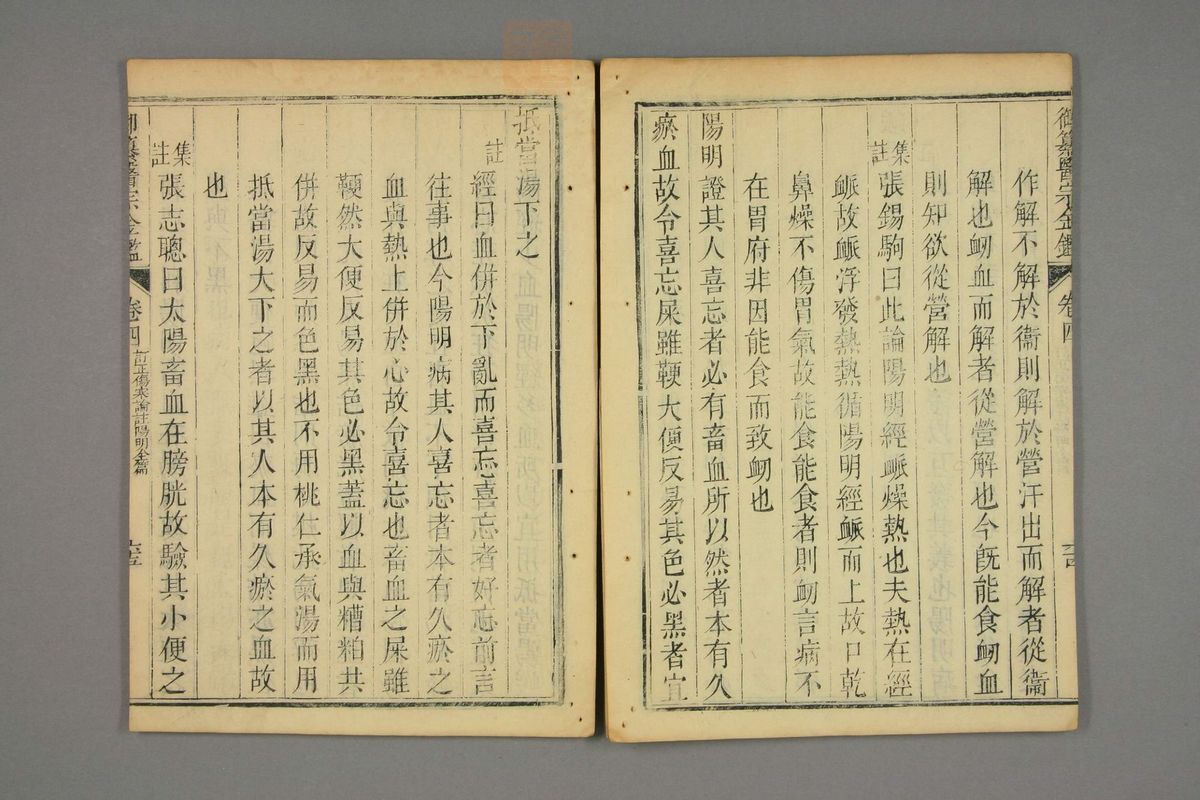 御纂醫宗金鑑 卷四
作解不解於衞則解於營汗出而解者從衞
解也衂血而解者從營解也今旣能食衂血
則知欲從營解也
集註
張錫駒曰此論陽明經脈燥熱也夫熱在經
脈故脈浮發熱熱循陽明經脈而上故口乾
鼻燥不傷胃氣故能食能食者則衂言病不
在胃府非因能食而致衂也
陽明證其人喜忘者必有畜血所以然者本有久
瘀血故令喜忘屎雖鞕大便反易其色必黑者宜
抵當湯下之
註
經曰血併於下亂而喜忘喜忘者好忘前言
往事也今陽明病其人喜忘者本有久瘀之
血與熱上併於心故令喜忘也畜血之屎雖
鞕然大便反易其色必黑蓋以血與糟粕共
併故反易而色黑也不用桃仁承氣湯而用
抵當湯大下之者以其人本有久瘀之血故
也
集註
張志聰曰太陽畜血在膀胱故驗其小便之
御纂醫宗金鑑 卷四 訂正傷寒論註陽明全篇